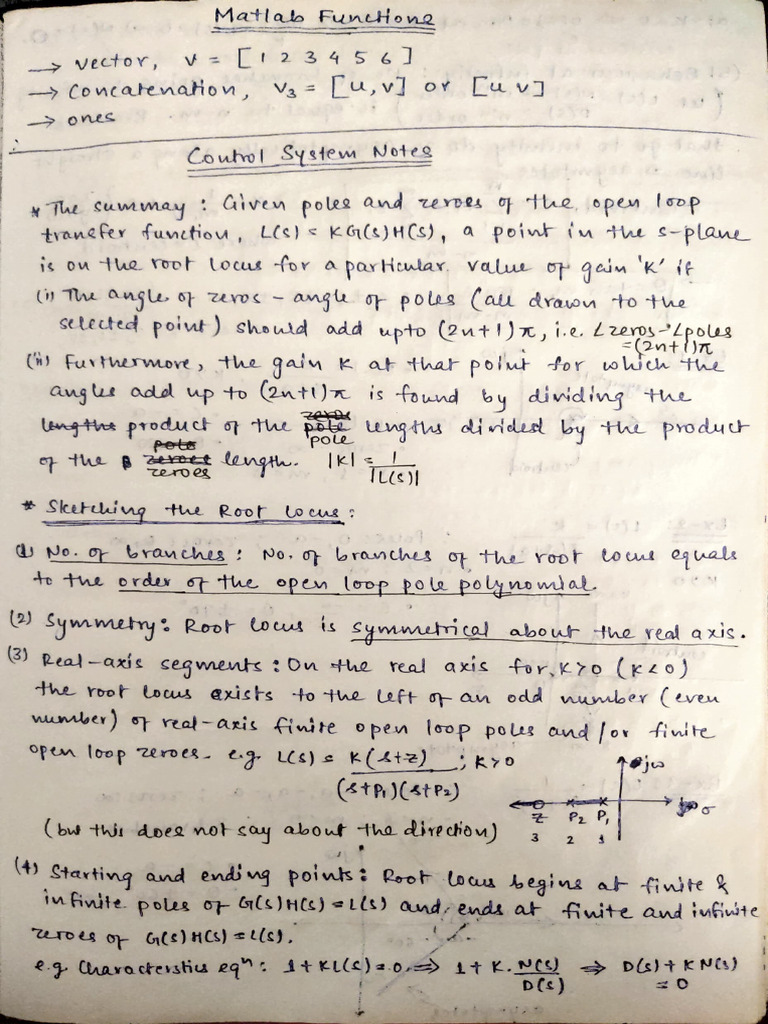 Matlab Functions
→ vector, v = [ 1 2 3 4 5 6 ]
→ Concatenation, v₃ = [u, v] or [u v]
→ ones
Control System Notes
* The summay : Given poles and zeroes of the open loop
transfer function, L(s) = KG(s)H(s), a point in the s-plane
is on the root locus for a particular value of gain 'K' if
(i) The angle of zeros - angle of poles (all drawn to the
selected point) should add upto (2n+1)π, i.e. ∠zeros-∠poles
=(2n+1)π
(ii) Furthermore, the gain K at that point for which the
angles add up to (2n+1)π is found by dividing the
lengths product of the pole lengths divided by the product
pole
of the zeroes length. |K| = 1/|L(s)|
zeroes
* Sketching the Root locus :
(1) No. of branches : No. of branches of the root locus equals
to the order of the open loop pole polynomial.
(2) Symmetry : Root locus is symmetrical about the real axis.
(3) Real-axis segments : On the real axis for, K>0 (K<0)
the root locus exists to the left of an odd number (even
number) of real-axis finite open loop poles and/or finite
open loop zeroes. e.g. L(s) = K(s+z)/(s+P₁)(s+P₂) ; K>0
jω
σ
Z P₂ P₁
3 2 1
(but this does not say about the direction)
(4) Starting and ending points : Root locus begins at finite &
infinite poles of G(s)H(s) = L(s) and ends at finite and infinite
zeroes of G(s)H(s) = L(s).
e.g. Characterstics eqⁿ : 1 + KL(s) = 0 ⇒ 1 + K. N(s)/D(s) ⇒ D(s) + KN(s)
= 0